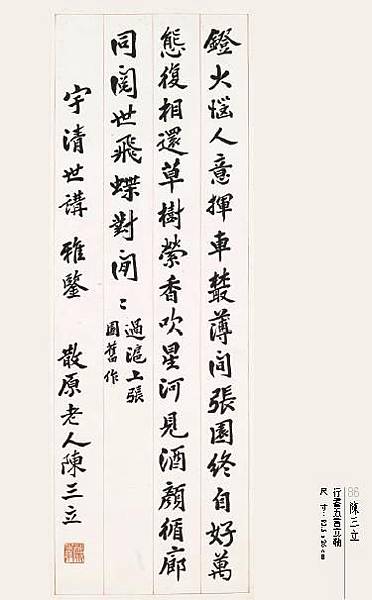 鐙火惱人意揮車叢薄间張園終自好萬
態復相還草樹縈香吹星河見酒顏循廊
同閱世飛蝶對閒〻
過滬上張
園舊作
宇清世講 雅鑒 散原老人陳三立
86 陳三立
行書五言立軸